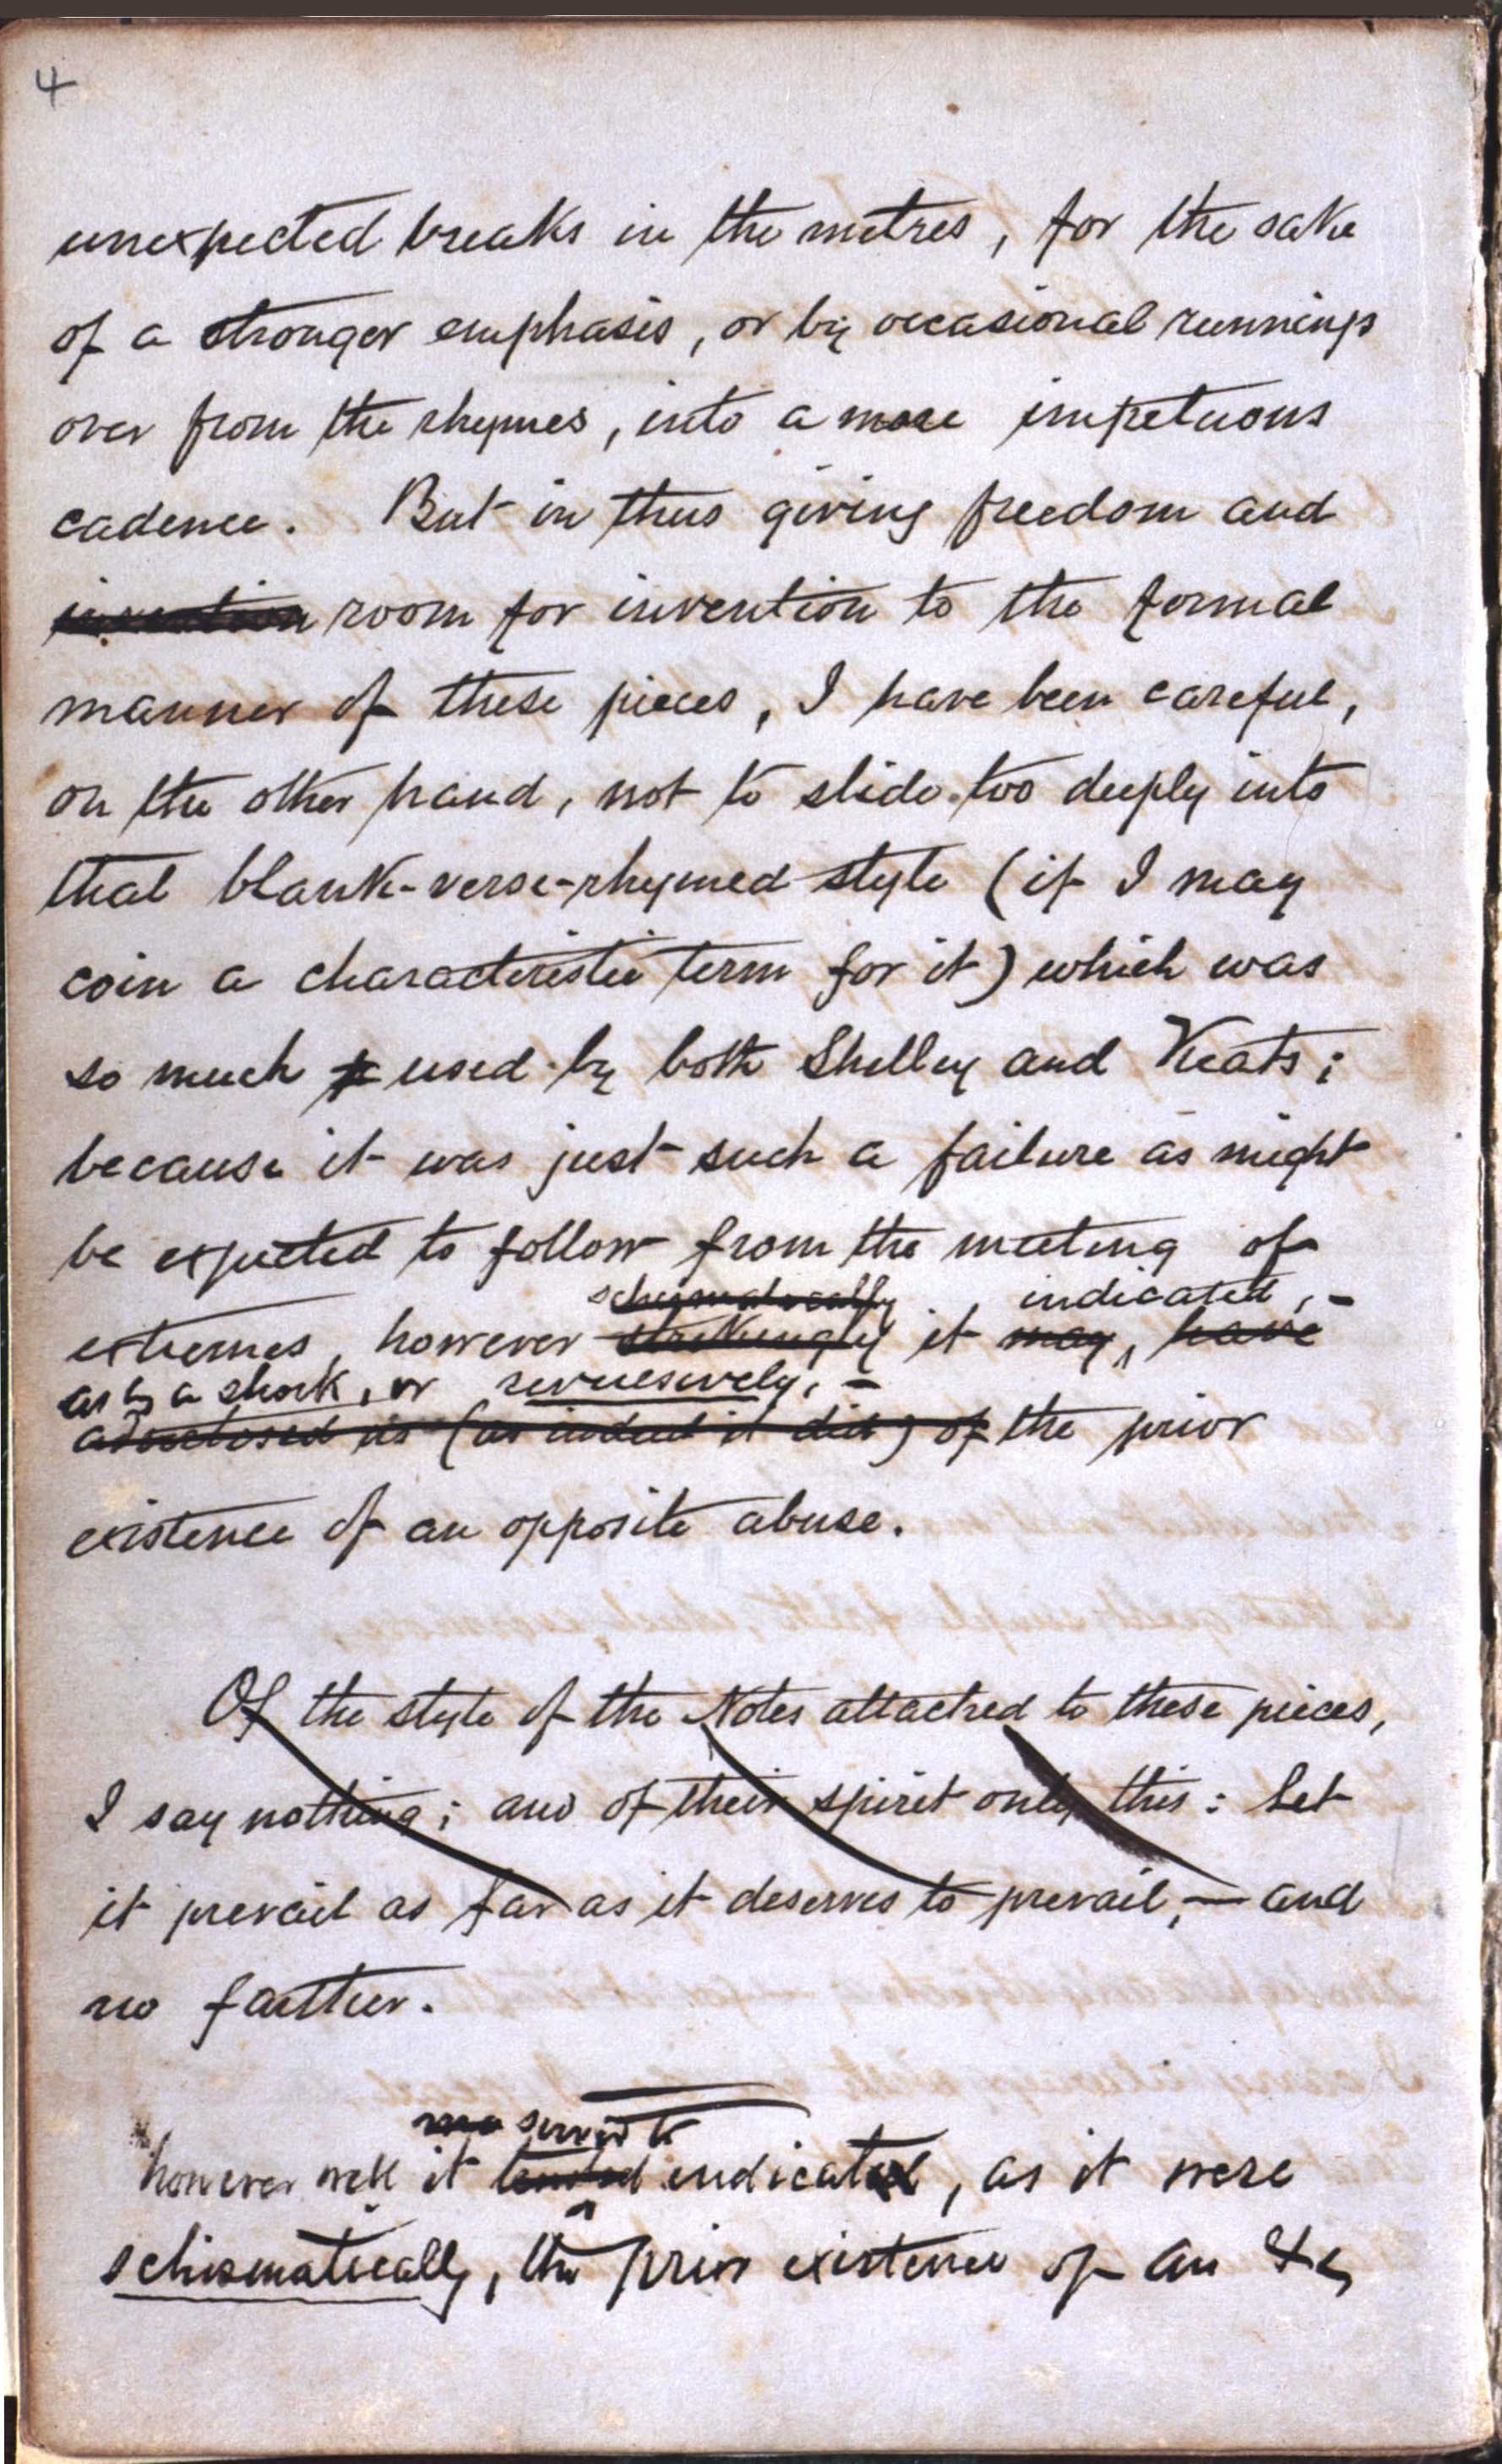 4
unexpected breaks in the metres, for the sake
of a stronger emphasis, or by occasional runnings
over from the rhymes, into a more impetuous
cadence. But in thus giving freedom and
invention room for invention to the formal
manner of these pieces, I have been careful,
on the other hand, not to slide too deeply into
that blank-verse-rhymed style (if I may
coin a characteristic term for it) which was
so much used by both Shelley and Keats;
because it was just such a failure as might
be expected to follow from the meeting of
schismatically indicated, –
extremes, however strikingly it may, have
as by a shock, or revulsively, –
(as indeed it did) of the prior
existence of an opposite abuse.
Of the style of the Notes attached to these pieces,
I say nothing; and of their spirit only this: Let
it prevail as far as it deserves to prevail, — and
no farther.
served to
however well it tended indicated, as it were
schismatically, the prior existence of an &c